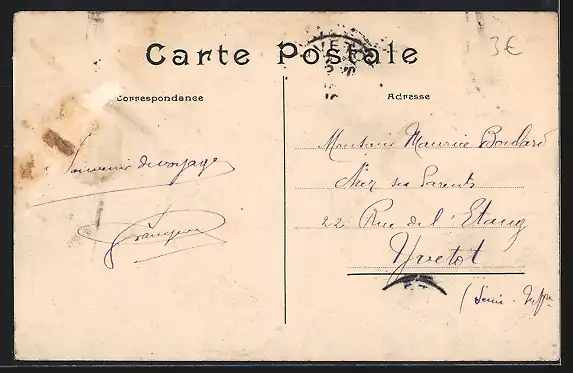 Carte Postale
3€
Correspondance
Adresse
Souvenir de voyage
Monsieur Maurice Boulard
chez ses Parents
22 Rue de l'Etang
Yvetot
(Seine-Infre